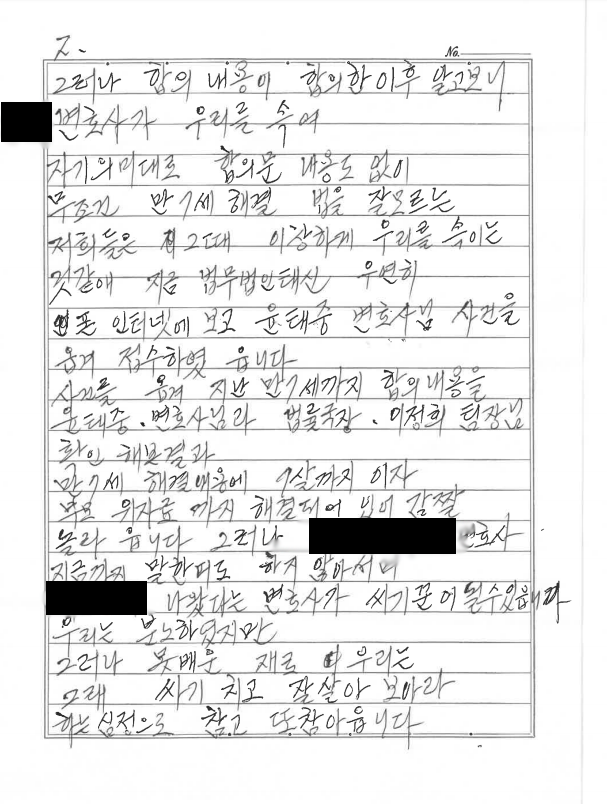 2.
No.
그러나 합의 내용이 합의한 이후 알고보니
변호사가 우리를 속여
자기의 미대로 합의문 내용도 없이
무조건 만7세 해결 법을 잘모르는
저희들은 그때 이상하게 우리를 속이는
것같애 지금 법무법인태신 우연히
폰 인터넷에 보고 윤태중 변호사님 사건을
옴겨 접수하였 읍니다
사건를 옴겨 지난 만7세까지 합의내용을
윤태중.변호사님과 법률국장.이정희 팀장님
확인 해본결과
만7세 해결내용에 7살까지 이자
부모 위자료 까지 해결되어 있어 감짤
놀라 읍니다 그러나 변호사
지금까지 말한마도 하지 않아서며
나왔다는 변호사가 싸기꾼이 될수있읍니다
우리는 분노하였지만
그러나 못배운 재로 우리는
그래 싸기 치고 잘살아 보아라
하는심정으로 참고 또참아읍니다